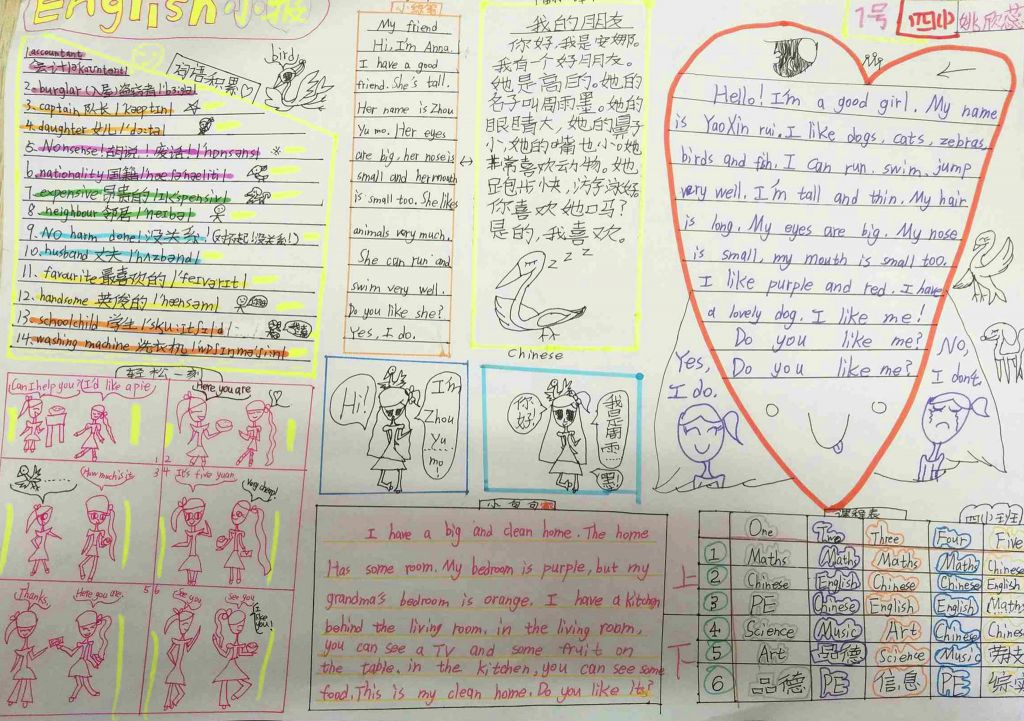 English 小报
1号 四小 姚欣蕊
词语积累
bird
1. accountant
会计 | ə'kauntənt |
2. burglar (入屋)盗窃者 | 'bɜ:glə |
3. captain 队长 | 'kæptɪn |
4. daughter 女儿 | 'dɔ:tə |
5. Nonsense! 胡说! 废话! | 'nɒnsəns |
6. nationality 国籍 | næʃə'næləti |
7. expensive 昂贵的 | ɪk'spensiv |
8. neighbour 邻居 | 'neɪbə |
9. NO harm done! 没关系! (对不起!没关系!)
10. husband 丈夫 | 'hʌzbənd |
11. favourite 最喜欢的 | 'feɪvərɪt |
12. handsome 英俊的 | 'hænsəm |
13. schoolchild 学生 | 'sku:ltʃɪld |
14. washing machine 洗衣机 | 'wɒʃɪŋməʃi:n |
My friend
Hi, I'm Anna.
I have a good
friend. She's tall.
Her name is Zhou
Yu mo. Her eyes
are big, her nose is
small and her mouth
is small too. She likes
animals very much.
She can run and
swim very well.
Do you like she?
Yes, I do.
我的朋友
你好,我是安娜。
我有一个好朋友。
她是高的。她的
名字叫周雨墨。她的
眼睛大,她的鼻子
小,她的嘴也小。她
非常喜欢动物。她
跑步快,游泳好。
你喜欢她吗?
是的,我喜欢。
z z z
Chinese
Hello! I'm a good girl. My name
is YaoXin rui. I like dogs, cats, zebras,
birds and fish. I can run. swim. jump
very well. I'm tall and thin. My hair
is long. My eyes are big. My nose
is small, my mouth is small too.
I like purple and red. I have
a lovely dog. I like me!
Do you like me?
Do you like me?
Yes,
I do.
No,
I don't.
轻松一刻
Can I help you?
I'd like a pie.
Here you are
1
2
How much is it
3
4
It's five yuan.
Very cheap!
Thanks.
Here you are.
5
6
See you
See you
I like you!
Hi!
I'm
Zhou
Yu
mo!
你好!
我是周雨墨!
I have a big and clean home. The home
Has some room. My bedroom is purple, but my
grandma's bedroom is orange. I have a kitchen
behind the living room. in the living room,
you can see a TV and some fruit on
the table. in the kitchen, you can see some
food. This is my clean home. Do you like Its?
课程表
One Two Three Four Five
上
1 Maths Maths Maths Maths Chinese
2 Chinese English Chinese Chinese English
3 PE Chinese English English Maths
下
4 Science Music Art Chinese Chinese
5 Art 品德 Science Music 劳技
6 品德 PE 信息 PE 综实